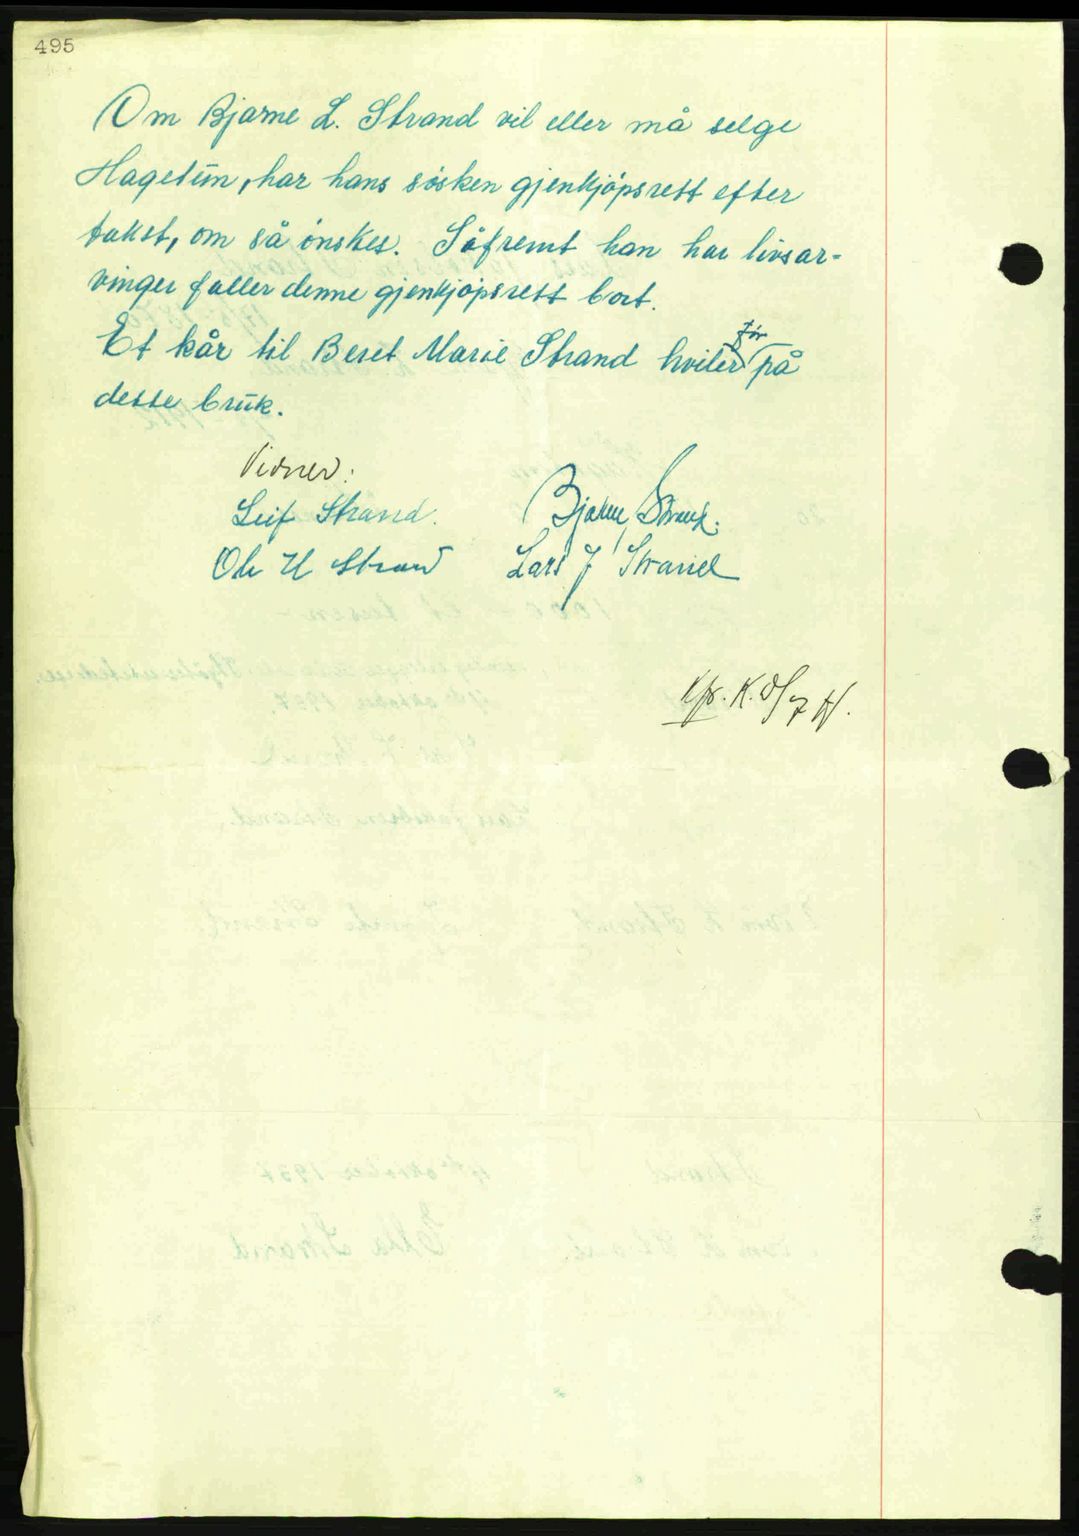 495
Om Bjarne L. Strand vil eller må selge
Hagetun, har hans søsken gjenkjøpsrett efter
takst, om så ønskes. Såfremt han har livsar-
vinger faller denne gjenkjøpsrett bort.
Et kår til Beret Marie Strand hviler før på
dette bruk.
Vidner:
Leif Strand. Bjarne Strand.
Ole H Strand Lars J Strand
Kfr. K.